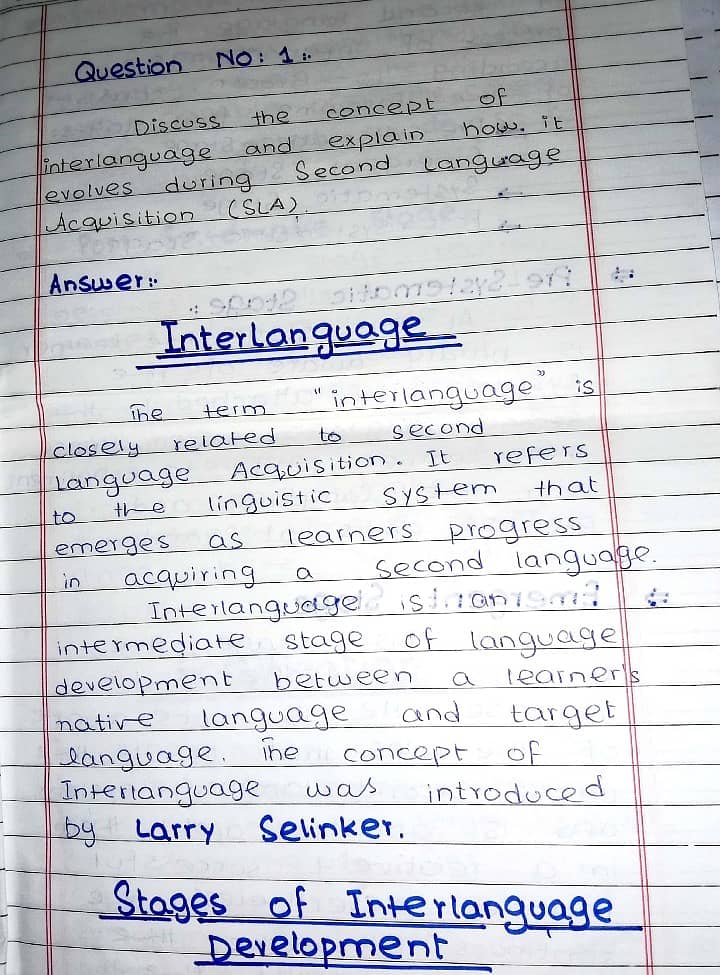 Question No: 1 :.
Discuss the concept of
interlanguage and explain how. it
evolves during Second Language
Acquisition (SLA).
Answer:.
Interlanguage
The term "interlanguage" is
closely related to second
Language Acquisition. It refers
to the linguistic system that
emerges as learners progress
in acquiring a second language.
Interlanguage is an
intermediate stage of language
development between a learner's
native language and target
language. The concept of
Interlanguage was introduced
by Larry Selinker.
Stages of Interlanguage
Development